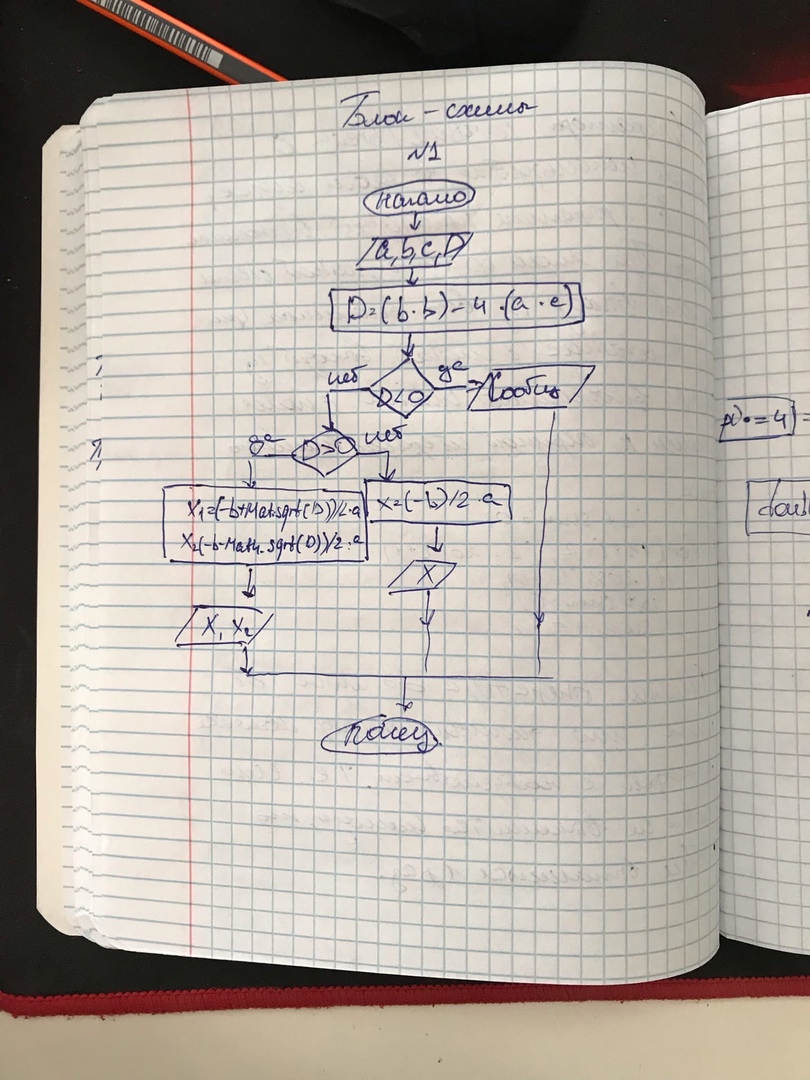 Блок-схемы
№1
Начало
a, b, c, D
D=(b·b)-4·(a·c)
нет
да
D<0
Сообщ
да
D>0
нет
X1=(-b+Math.sqrt(D))/2·a
X2(-b-Math.sqrt(D))/2·a
x=(-b)/2·a
X
X1 X2
Конец
=4)
doub